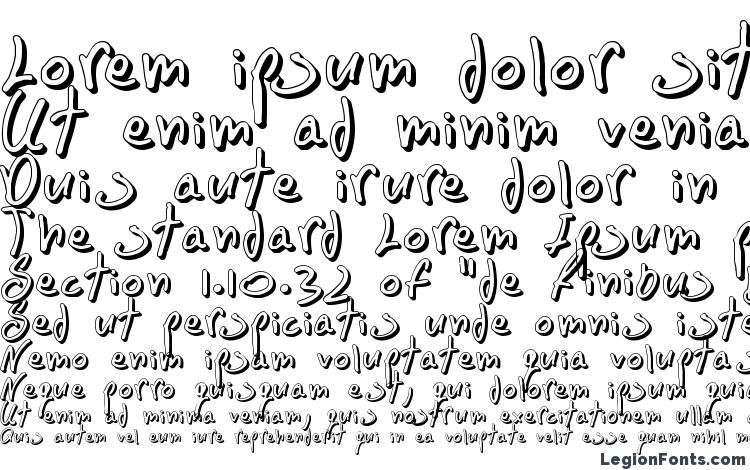 Lorem ipsum dolor sit
Ut enim ad minim venia
Duis aute irure dolor in
The standard Lorem Ipsum p
Section 1.10.32 of "de Finibus
Sed ut perspiciatis unde omnis iste
Nemo enim ipsam voluptatem quia voluptas
Neque porro quisquam est, qui dolorem ipsum quia
Ut enim ad minima veniam, quis nostrum exercitationem ullam
Quis autem vel eum iure reprehenderit qui in ea voluptate velit esse quam nihil m
LegionFonts.com